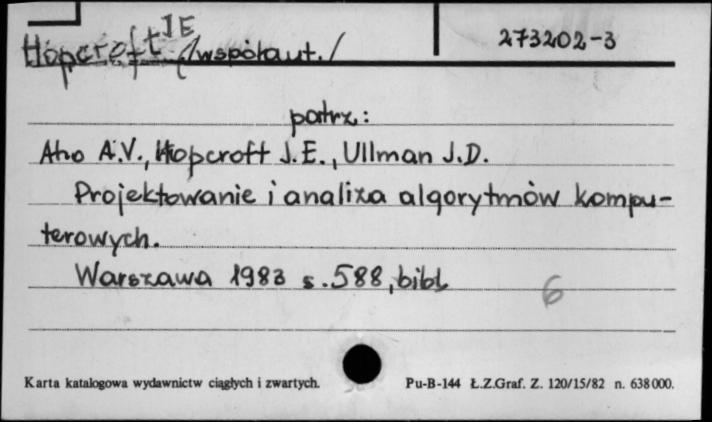 Hopcroft J E /współaut./
273202-3
patrz:
Aho A.V., Hopcroft J.E., Ullman J.D.
Projektowanie i analiza algorytmów kompu-
terowych.
Warszawa 1983 s. 588, bibl
6
Karta katalogowa wydawnictw ciągłych i zwartych.
Pu-B-144 Ł.Z.Graf. Z. 120/15/82 n. 638000.